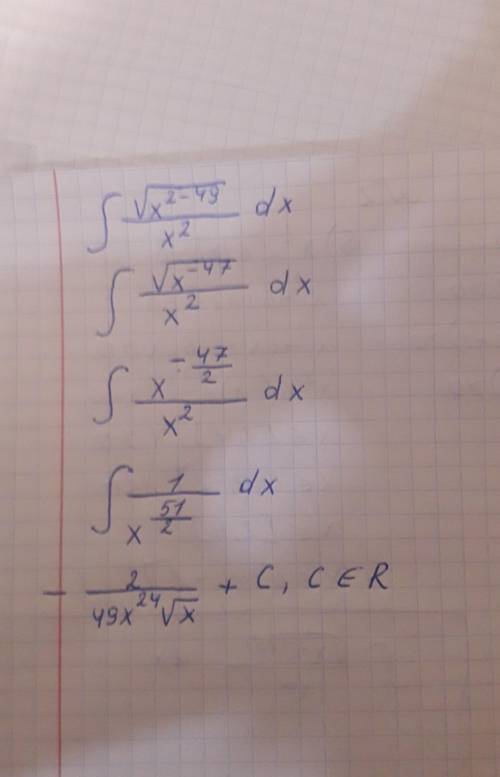 ∫ √(x^(2-49)) / x^2 dx
∫ √(x^(-47)) / x^2 dx
∫ x^(-47/2) / x^2 dx
∫ 1 / x^(51/2) dx
- 2 / (49x^24 √x) + C, C ∈ R